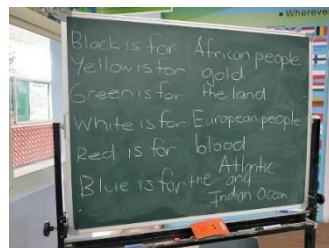 Wherever
Black is for African people
Yellow is for gold
Green is for the land
White is for European people
Red is for blood
Blue is for the Atlantic and
Indian Ocean